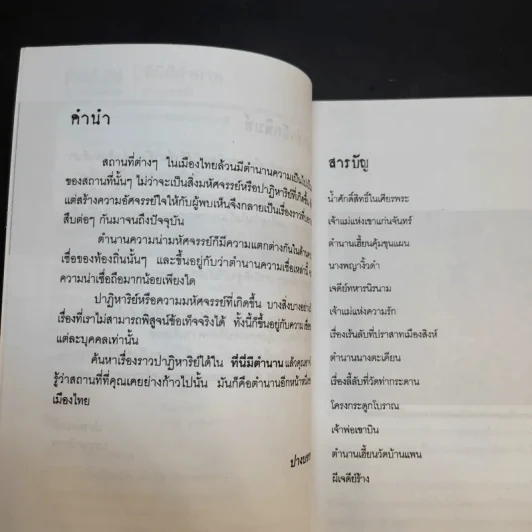 คำนำ
สถานที่ต่างๆ ในเมืองไทยล้วนมีตำนานความเป็น
ของสถานที่นั้นๆ ไม่ว่าจะเป็นสิ่งมหัศจรรย์หรือปาฏิหาริย์ที่เกิดขึ้น
แต่สร้างความอัศจรรย์ใจให้กับผู้พบเห็นจึงกลายเป็นเรื่องราว
สืบต่อๆ กันมาจนถึงปัจจุบัน
ตำนานความน่ามหัศจรรย์ก็มีความแตกต่างกันในด้าน
เชื่อของท้องถิ่นนั้นๆ และขึ้นอยู่กับว่าตำนานความเชื่อเหล่านี้
ความน่าเชื่อถือมากน้อยเพียงใด
ปาฏิหาริย์หรือความมหัศจรรย์ที่เกิดขึ้น บางสิ่งบางอย่าง
เรื่องที่เราไม่สามารถพิสูจน์ข้อเท็จจริงได้ ทั้งนี้ก็ขึ้นอยู่กับความเชื่อ
แต่ละบุคคลเท่านั้น
ค้นหาเรื่องราวปาฏิหาริย์ได้ใน ที่นี่มีตำนาน แล้วคุณ
รู้ว่าสถานที่ที่คุณเคยย่างก้าวไปนั้น มันก็คือตำนานอีกหน้าหนึ่ง
เมืองไทย
สารบัญ
น้ำศักดิ์สิทธิ์ในเศียรพระ
เจ้าแม่แห่งเขาแก่นจันทร์
ตำนานเฮี้ยนคุ้มขุนแผน
นางพญางิ้วดำ
เจดีย์ทหารนิรนาม
เจ้าแม่แห่งความรัก
เรื่องเร้นลับที่ปราสาทเมืองสิงห์
ตำนานนางตะเคียน
เรื่องลี้ลับที่วัดท่ากระดาน
โครงกระดูกโบราณ
เจ้าพ่อเขาบิน
ตำนานเฮี้ยนวัดบ้านแพน
ผีเจดีย์ร้าง